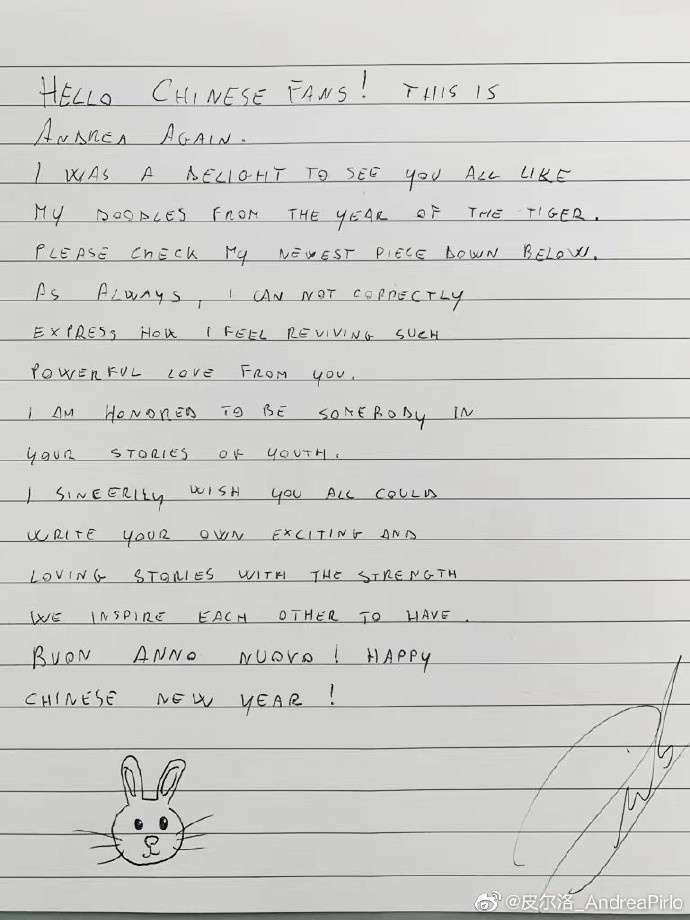 HELLO CHINESE FANS! THIS IS
ANDREA AGAIN.
I WAS A DELIGHT TO SEE YOU ALL LIKE
MY DOODLES FROM THE YEAR OF THE TIGER.
PLEASE CHECK MY NEWEST PIECE DOWN BELOW.
AS ALWAYS, I CAN NOT CORRECTLY
EXPRESS HOW I FEEL REVIVING SUCH
POWERFUL LOVE FROM YOU.
I AM HONORED TO BE SOMEBODY IN
YOUR STORIES OF YOUTH.
I SINCERILY WISH YOU ALL COULD
WRITE YOUR OWN EXCITING AND
LOVING STORIES WITH THE STRENGTH
WE INSPIRE EACH OTHER TO HAVE.
BUON ANNO NUOVO! HAPPY
CHINESE NEW YEAR!
@皮尔洛_AndreaPirlo